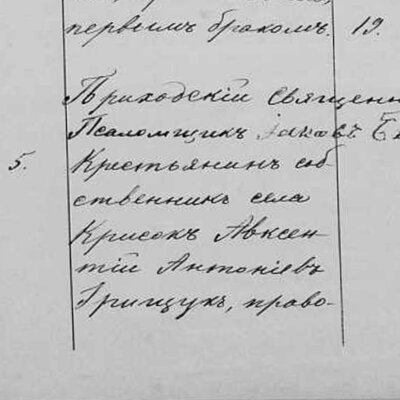 первымъ бракомъ. 19.
Приходскій Священн
Псаломщикъ Іаковъ
5. Крестьянинъ соб-
ственникъ села
Крисокъ Авксен-
тій Антоніевъ
Грищукъ, право-